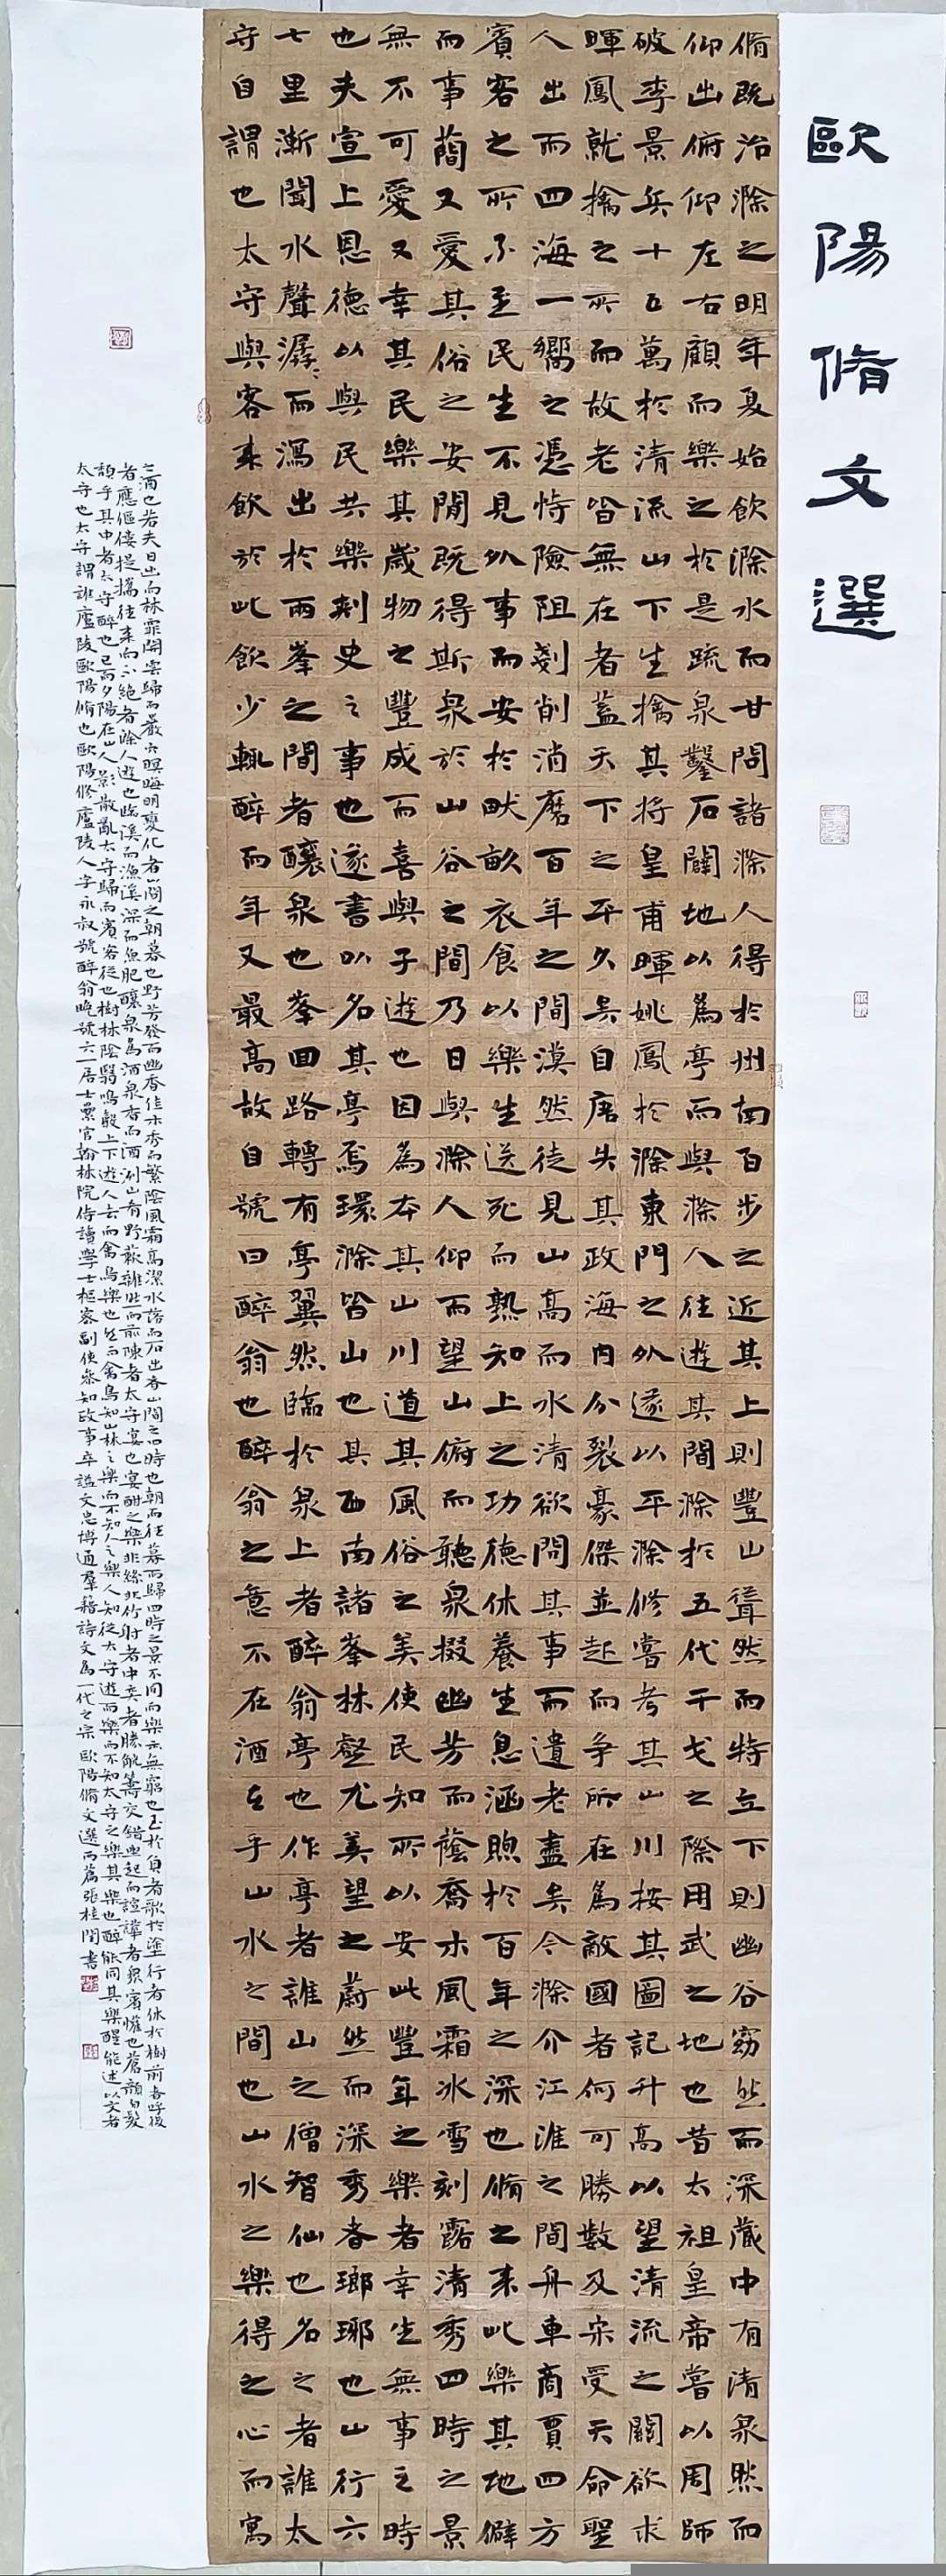 歐陽脩文選
脩既治滁之明年夏始飲滁水而甘問諸滁人得於州南百步之近其上則豐山聳然而特立下則幽谷窈然而深藏中有清泉然而
仰出俯仰左右顧而樂之於是疏泉鑿石闢地以為亭而與滁人往遊其間滁於五代干戈之際用武之地也昔太祖皇帝嘗以周師
破李景兵十五萬於清流山下生擒其將皇甫暉姚鳳於滁東門之外遂以平滁修嘗考其山川按其圖記升高以望清流之關欲求
暉鳳就擒之所而故老皆無在者蓋天下之平久矣自唐失其政海內分裂豪傑並起而爭所在為敵國者何可勝數及宋受天命聖
人出而四海一嚮之憑恃險阻剗削消磨百年之間漠然徒見山高而水清欲問其事而遺老盡矣今滁介江淮之間舟車商賈四方
賓客之所不至民生不見外事而安於畎畝衣食以樂生送死而孰知上之功德休養生息涵煦於百年之深也脩之來此樂其地僻
而事簡又愛其俗之安閒既得斯泉於山谷之間乃日與滁人仰而望山俯而聽泉掇幽芳而蔭喬木風霜冰雪刻露清秀四時之景
無不可愛又幸其民樂其歲物之豐成而喜與予遊也因為本其山川道其風俗之美使民知所以安此豐年之樂者幸生無事之時
也夫宣上恩德以與民共樂刺史之事也遂書以名其亭焉環滁皆山也其西南諸峯林壑尤美望之蔚然而深秀者瑯琊也山行六
七里漸聞水聲潺潺而瀉出於兩峯之間者釀泉也峯回路轉有亭翼然臨於泉上者醉翁亭也作亭者誰山之僧智仙也名之者誰太
守自謂也太守與客來飲於此飲少輒醉而年又最高故自號曰醉翁也醉翁之意不在酒在乎山水之間也山水之樂得之心而寓
之酒也若夫日出而林霏開雲歸而巖穴暝晦明變化者山間之朝暮也野芳發而幽香佳木秀而繁陰風霜高潔水落而石出者山間之四時也朝而往暮而歸四時之景不同而樂亦無窮也至於負者歌於塗行者休於樹前者呼後
者應傴僂提攜往來而不絕者滁人遊也臨溪而漁溪深而魚肥釀泉為酒泉香而酒洌山肴野蔌雜然而前陳者太守宴也宴酣之樂非絲非竹射者中奕者勝觥籌交錯坐起而諠譁者眾賓懽也蒼顏白髮
頹乎其中者太守醉也已而夕陽在山人影散亂太守歸而賓客從也樹林陰翳鳴聲上下遊人去而禽鳥樂也然而禽鳥知山林之樂而不知人之樂人知從太守遊而樂而不知太守之樂其樂也醉能同其樂醒能述以文者
太守也太守謂誰廬陵歐陽脩也歐陽修廬陵人字永叔號醉翁晚號六一居士累官翰林院侍讀學士樞密副使參知政事卒謚文忠博通羣籍詩文為一代之宗歐陽脩文選兩篇張桂閏書